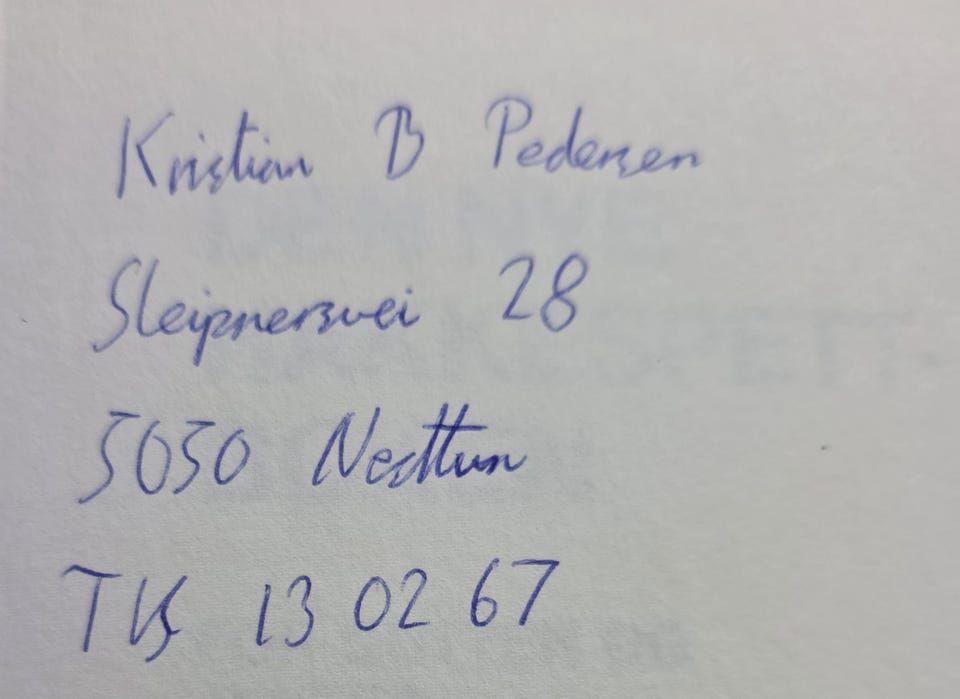 Kristian B Pedersen
Sleipnersvei 28
5050 Nesttun
Tlf 13 02 67